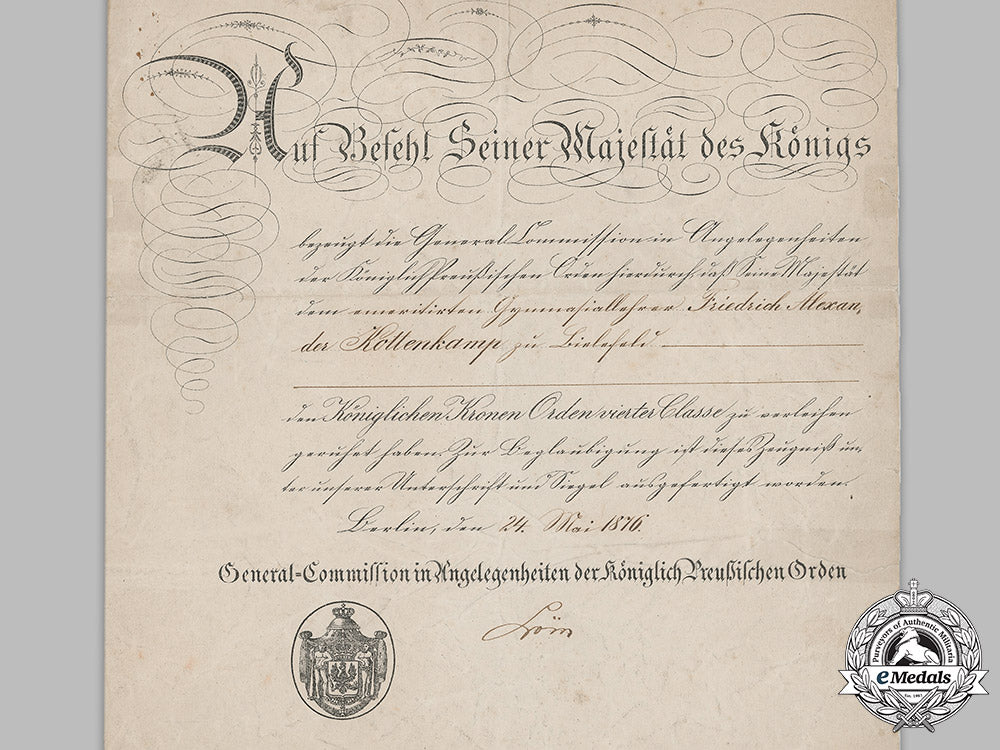 Auf Befehl Seiner Majestät des Königs
bezeugt die General Commission in Angelegenheiten
der Königlich Preußischen Orden hierdurch, daß Seine Majestät
dem emeritirten Gymnasiallehrer Friedrich Alexan,
der Kottenkamp zu Bielefeld
den Königlichen Kronen Orden vierter Classe zu verleihen
geruhet haben. Zur Beglaubigung ist dieses Zeugniß un,
ter unserer Unterschrift und Siegel ausgefertigt worden.
Berlin, den 24. Mai 1876.
General-Commission in Angelegenheiten der Königlich Preußischen Orden
Purveyors of Authentic Militaria
eMedals